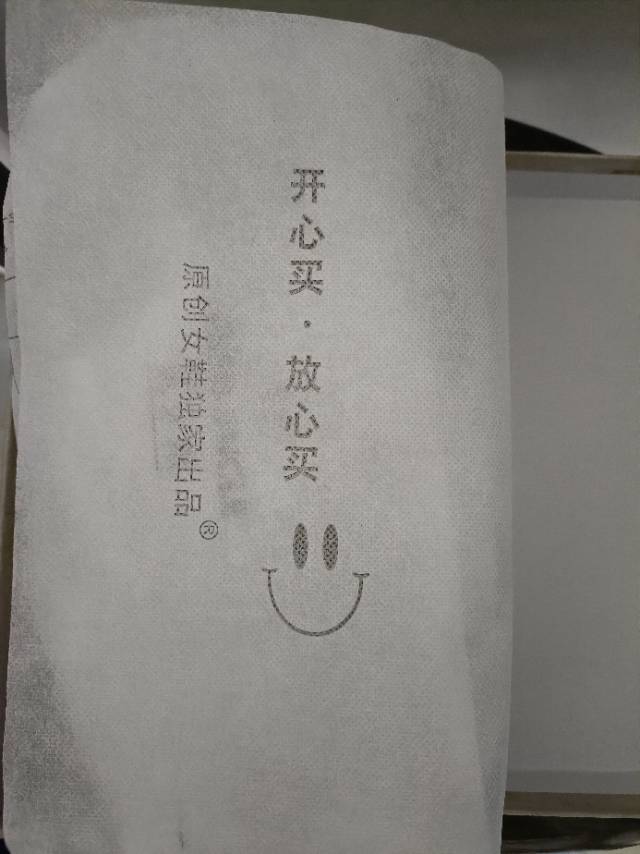 开心买·放心买
原创女鞋独家出品®